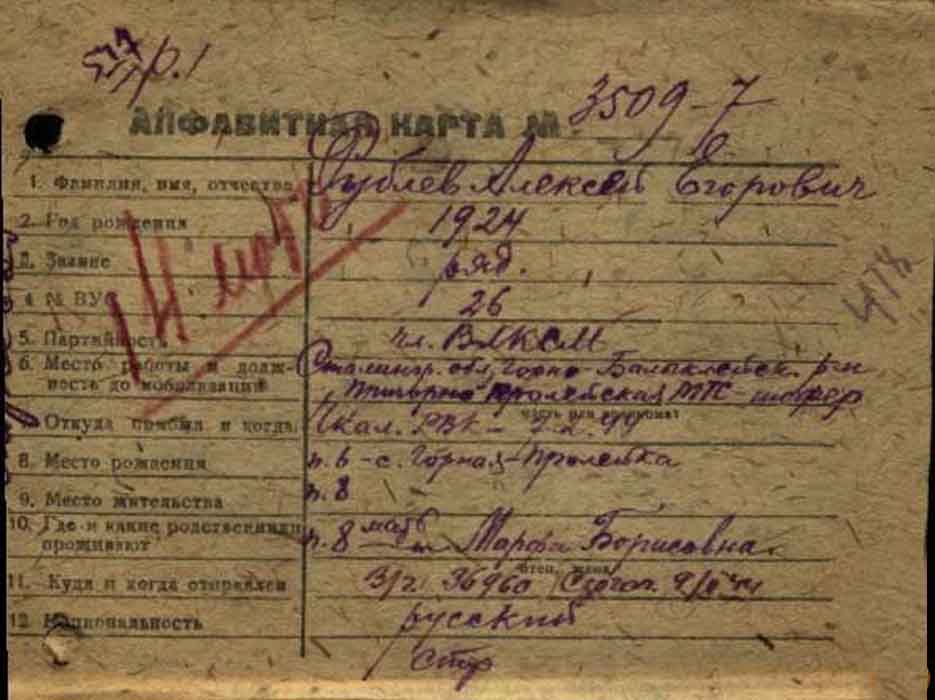 стр. 1
АЛФАВИТНАЯ КАРТА № 3509-7
1. Фамилия, имя, отчество Рублев Алексей Егорович
2. Год рождения 1924
3. Звание ряд.
4. № ВУС 26
5. Партийность чл. ВЛКСМ
6. Место работы и долж- Сталингр. обл, Горно Балыклейск. р-н
ность до мобилизации Пригорно Пролейская МТС - шофер
часть или военкомат
Откуда прибыл и когда РВК - 7.2.44
8. Место рождения п. 6 - с. Горная-Пролейка
9. Место жительства п. 8
10. Где и какие родственники
проживают п. 8 мать Марфа Борисовна
отец, жена
11. Куда и когда отправлен В/ч 36960
12. Национальность русский
стр
478